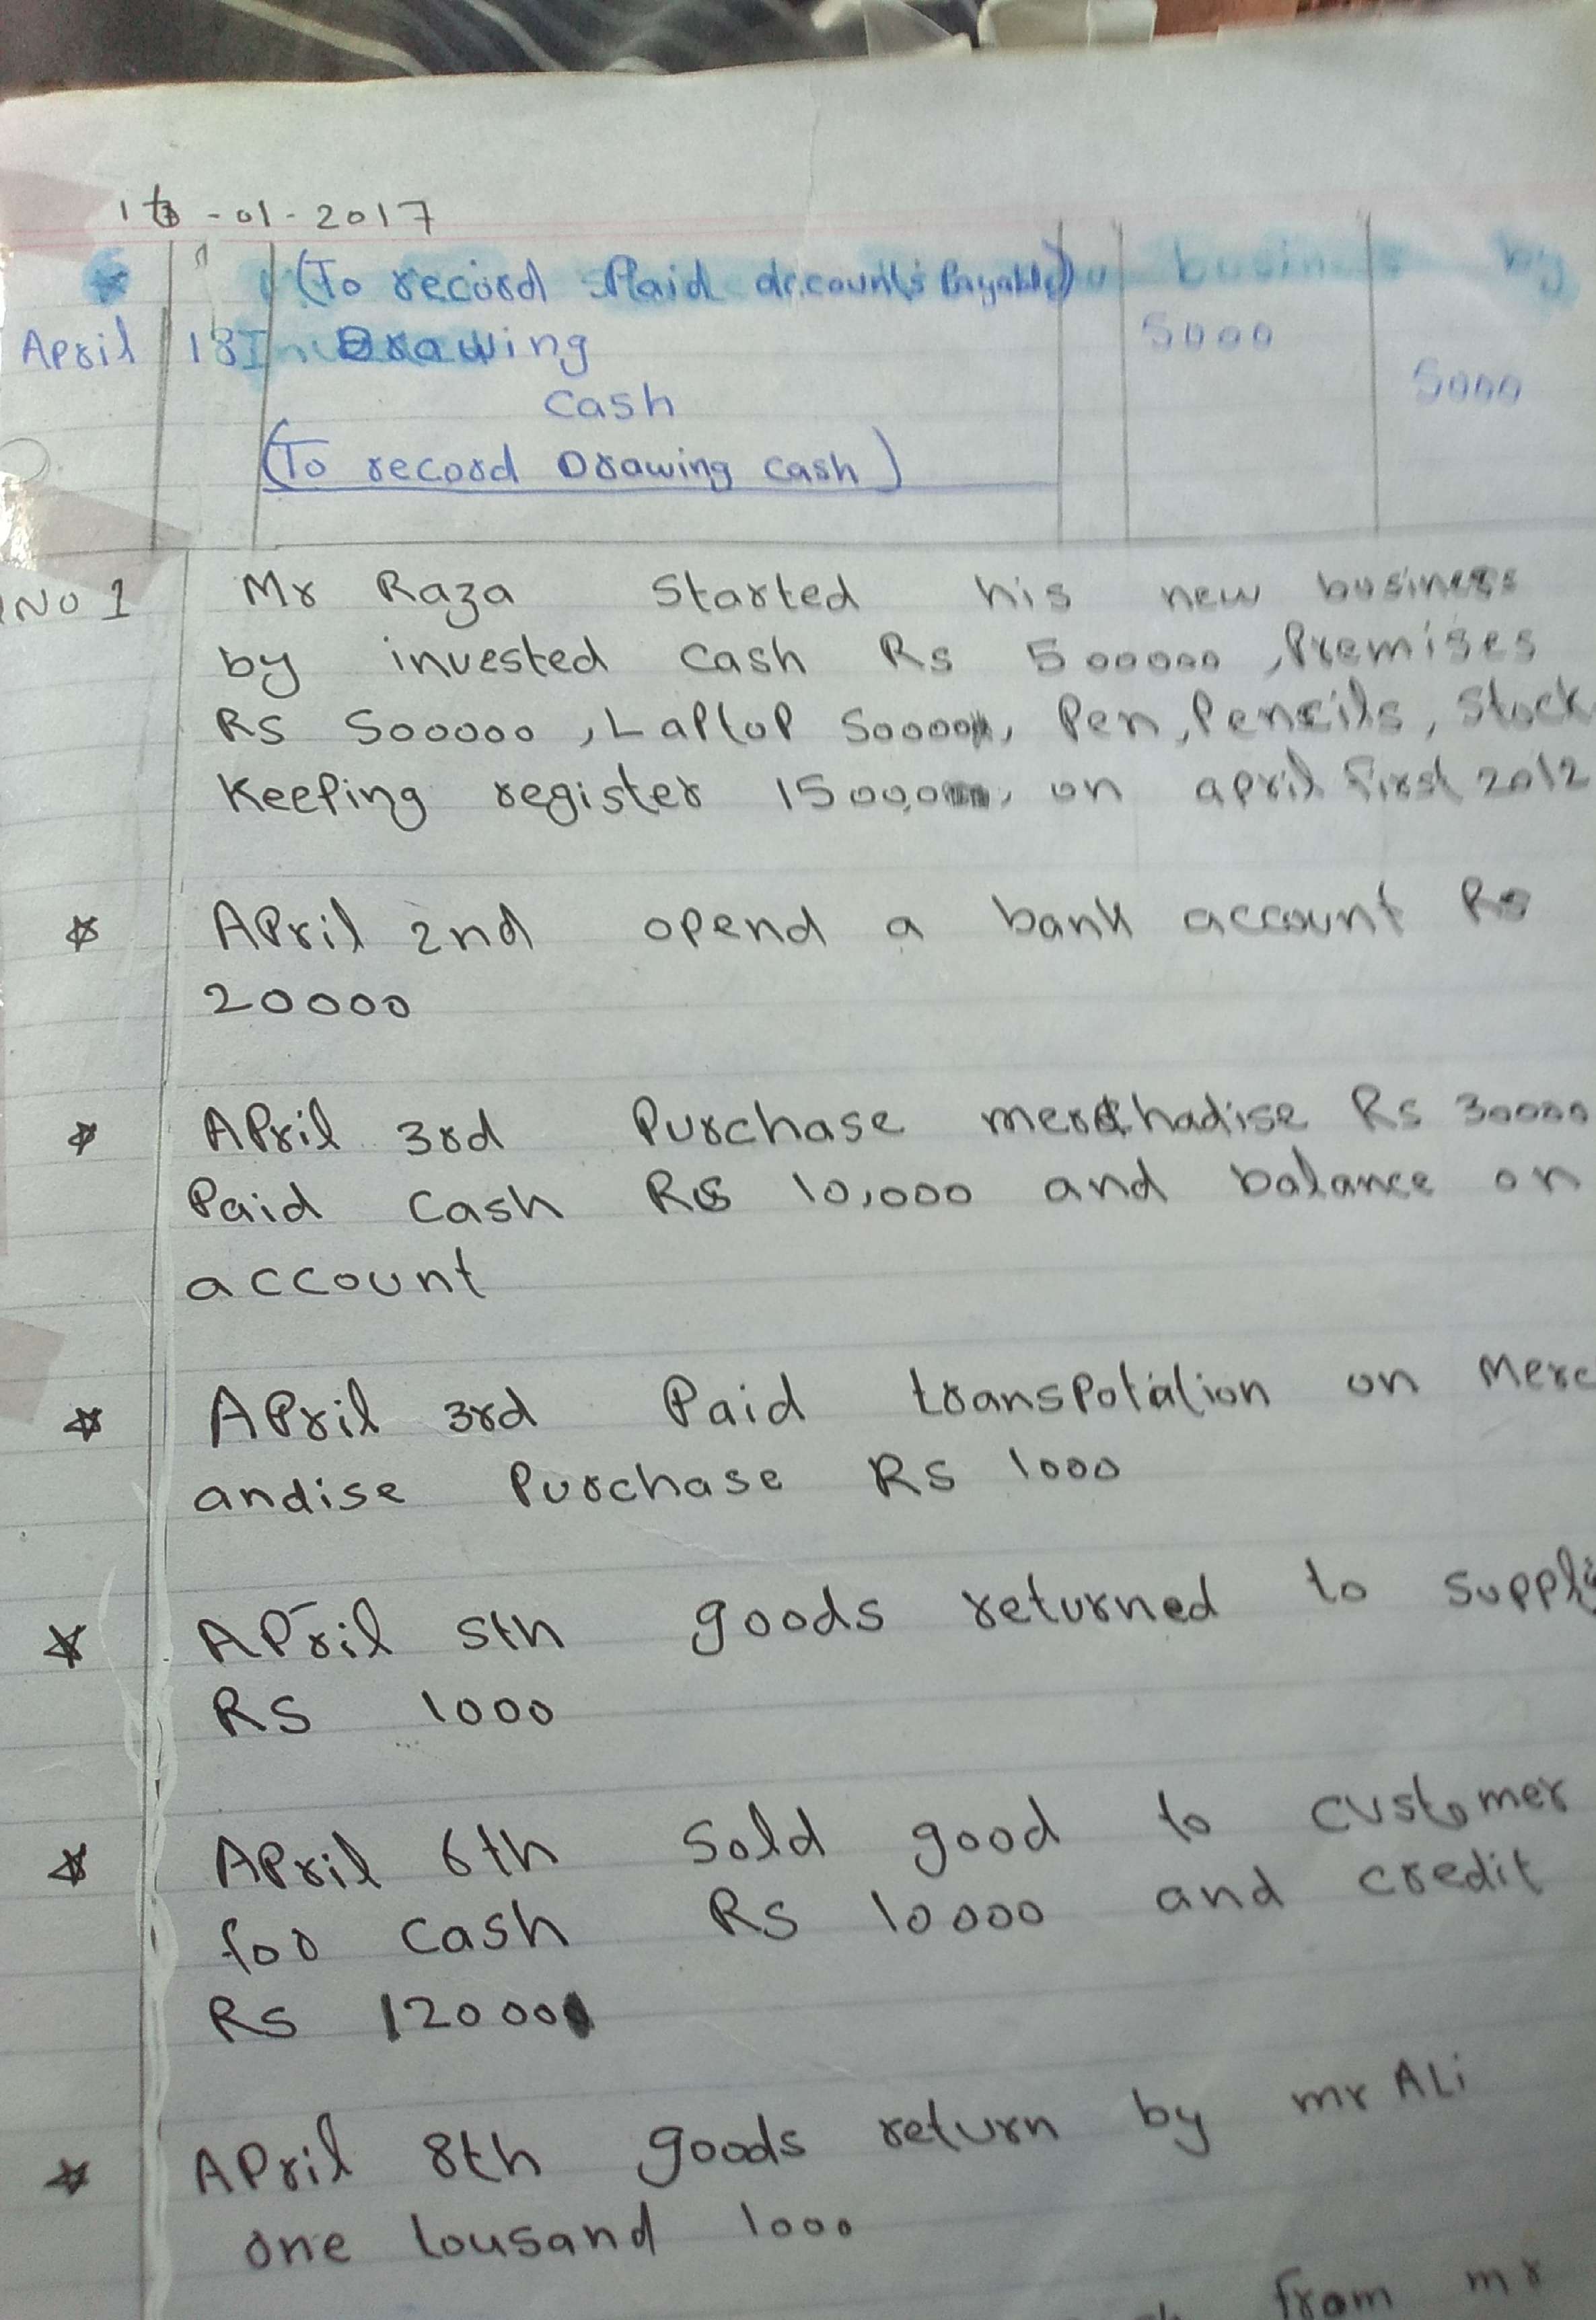 -01-2017
(To record Paid accounts Payable) business by
April 18 Drawing 5000
Cash 5000
(To record Drawing cash)
NO 1 Mr Raza started his new business
by invested cash Rs 500000, Premises
Rs 500000, LaPtoP Pen, Pencils, Stock
KeePing register on april first 2012
APril 2nd opend a bank account Rs
20000
APril 3rd Purchase merchadise Rs 30000
Paid cash Rs 10,000 and balance on
account
APril 3rd Paid transPotation on Merc
andise Purchase Rs 1000
APril 5th goods returned to suppli
RS 1000
APril 6th Sold good to customer
for cash Rs 10000 and credit
Rs 12000
APril 8th goods return by mr ALi
one tousand 1000
from mr